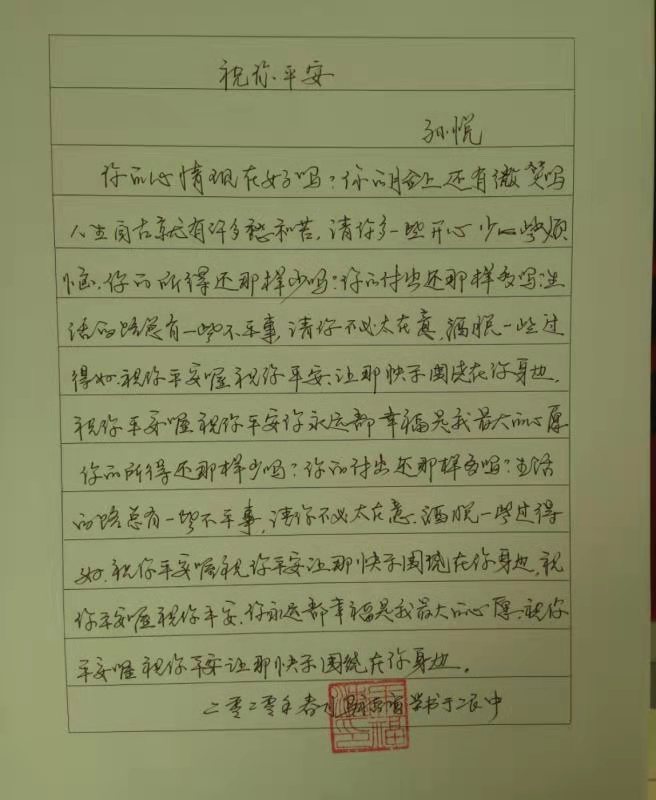 祝你平安
孙悦
你的心情现在好吗?你的脸上还有微笑吗
人生自古就有许多愁和苦,请你多一些开心少一些烦
恼.你的所得还那样少吗?你的付出还那样多吗?生
活的路总有一些不平事,请你不必太在意,洒脱一些过
得好.祝你平安喔祝你平安.让那快乐围绕在你身边.
祝你平安喔祝你平安你永远都幸福是我最大的心愿
你的所得还那样少吗?你的付出还那样多吗?生活
的路总有一些不平事,请你不必太在意.洒脱一些过得
好.祝你平安喔祝你平安让那快乐围绕在你身边,祝
你平安喔祝你平安.你永远都幸福是我最大的心愿.祝你
平安喔祝你平安让那快乐围绕在你身边.
二零二零年春 书于二中